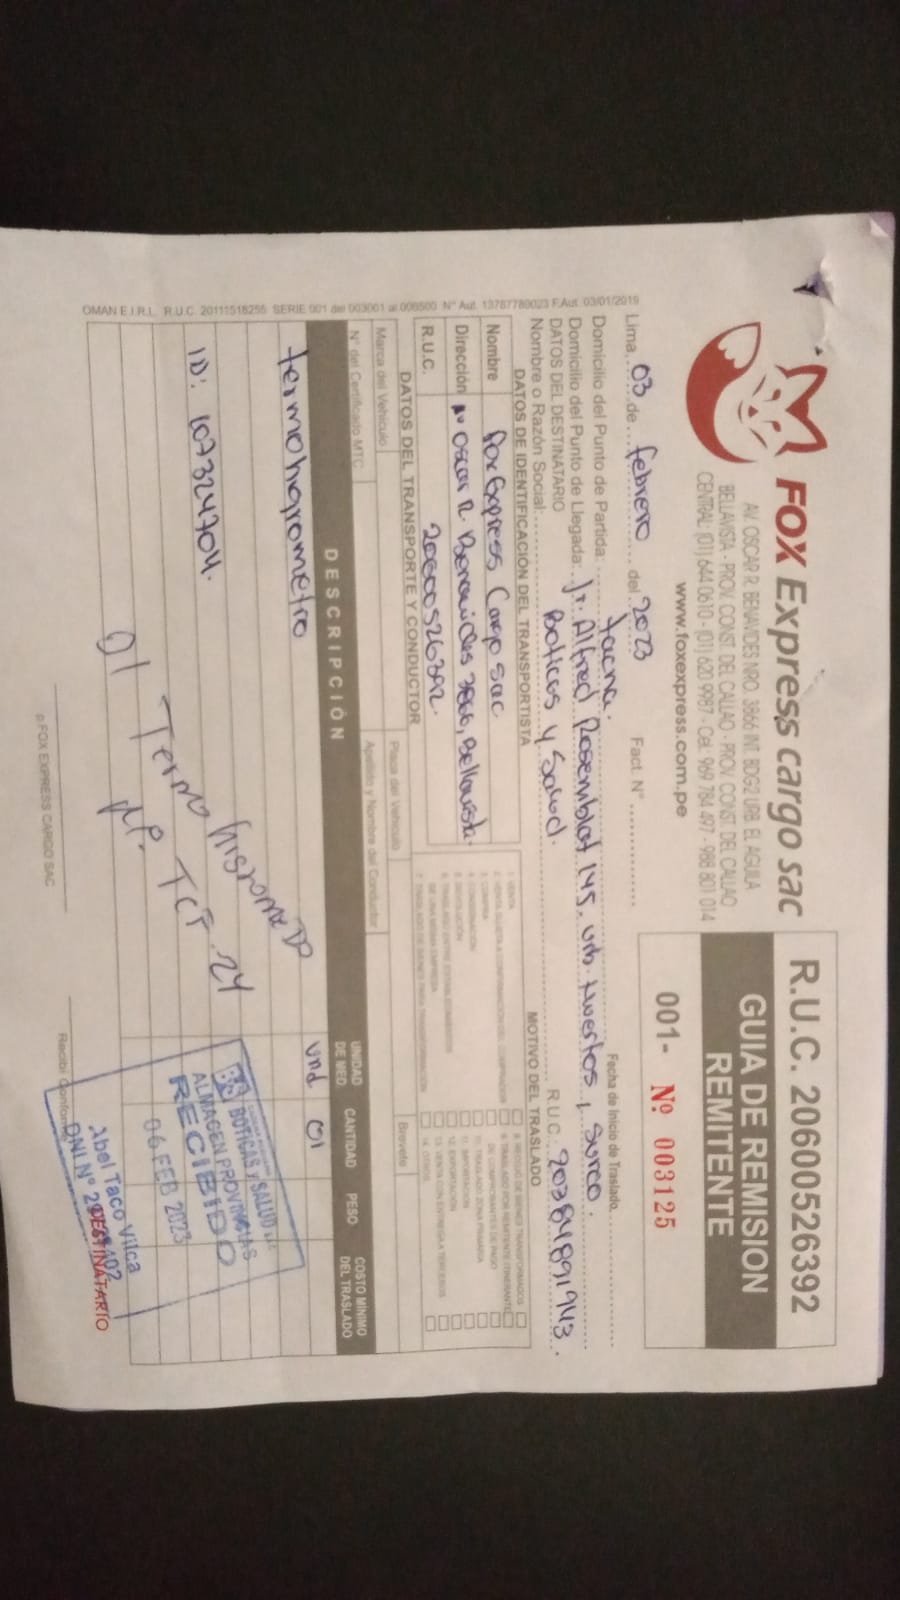 FOX Express cargo sac
AV. OSCAR R. BENAVIDES NRO. 3866 INT. BDG2 URB. EL AGUILA
BELLAVISTA - PROV. CONST. DEL CALLAO - PROV. CONST. DEL CALLAO
CENTRAL: (01) 644 0610 - (01) 620 9987 - Cel. 969 784 497 - 988 801 014
www.foxexpress.com.pe
R.U.C. 20600526392
GUIA DE REMISION
REMITENTE
001- Nº 003125
Lima 03 de febrero del 2023 Fact. N°
Fecha de Inicio de Traslado
Domicilio del Punto de Partida: Tacna.
Domicilio del Punto de Llegada: Jr. Alfred Rosemblat 145. urb. Huertos, Surco.
DATOS DEL DESTINATARIO
Nombre o Razón Social: Boticas y Salud. R.U.C. 20384891943.
DATOS DE IDENTIFICACIÓN DEL TRANSPORTISTA
MOTIVO DEL TRASLADO
Nombre Fox Express Cargo sac
Dirección Av Oscar R. Benavides 3866, Bellavista.
R.U.C. 20600526392.
1. VENTA
2. VENTA SUJETA A CONFIRMACIÓN DEL COMPRADOR
3. COMPRA
4. CONSIGNACIÓN
5. DEVOLUCIÓN
6. TRASLADO ENTRE ESTABLECIMIENTOS
DE UNA MISMA EMPRESA
7. TRASLADO DE BIENES PARA TRANSFORMACIÓN
8. RECOJO DE BIENES TRANSFORMADOS
9. TRASLADO POR REMITENTE ITINERANTE
DE COMPROBANTES DE PAGO
10. TRASLADO ZONA PRIMARIA
11. IMPORTACIÓN
12. EXPORTACIÓN
13. VENTA CON ENTREGA A TERCEROS
14. OTROS
DATOS DEL TRANSPORTE Y CONDUCTOR
Marca del Vehículo Placa del Vehículo Brevete
N° del Certificado MTC Apellido y Nombre del Conductor
DESCRIPCIÓN UNIDAD DE MED. CANTIDAD PESO COSTO MÍNIMO DEL TRASLADO
termohigrometro und 01
ID: 107324704.
01 Termo higrometro
TCT 24
BOTICAS y SALUD
ALMACEN PROVINCIAS
RECIBIDO
06 FEB 2023
Abel Taco Vilca
DNI N°
DESTINATARIO
p.FOX EXPRESS CARGO SAC
Recibí Conforme
OMAN E.I.R.L. R.U.C. 20111518255 SERIE 001 del 003001 al 003500 N° Aut. 13787780023 F.Aut. 03/01/2019